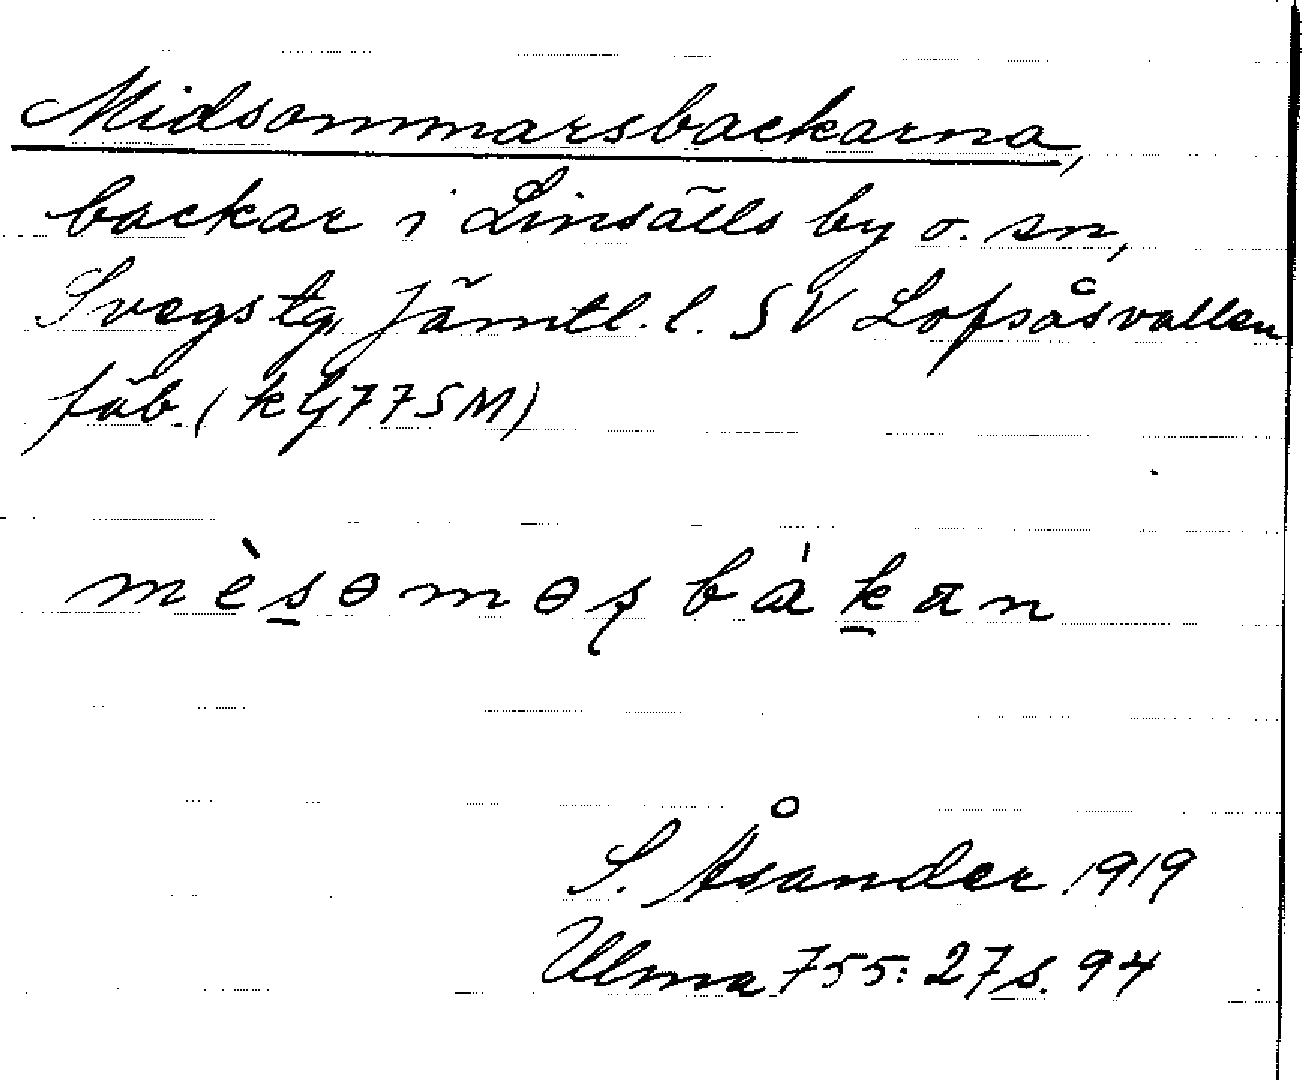 Midsommarsbackarna,
backar i Linsälls by o. sn,
Svegs tg, Jämtl. l. SV Lofsåsvallen
fäb. (kg 77 SM)
mèsɵmɵʂbákan
S. Åsander 1919
Ulma 755:27 s. 94